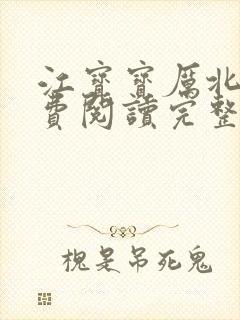 江寶寶厲北
費閱讀完整
槐是吊死鬼